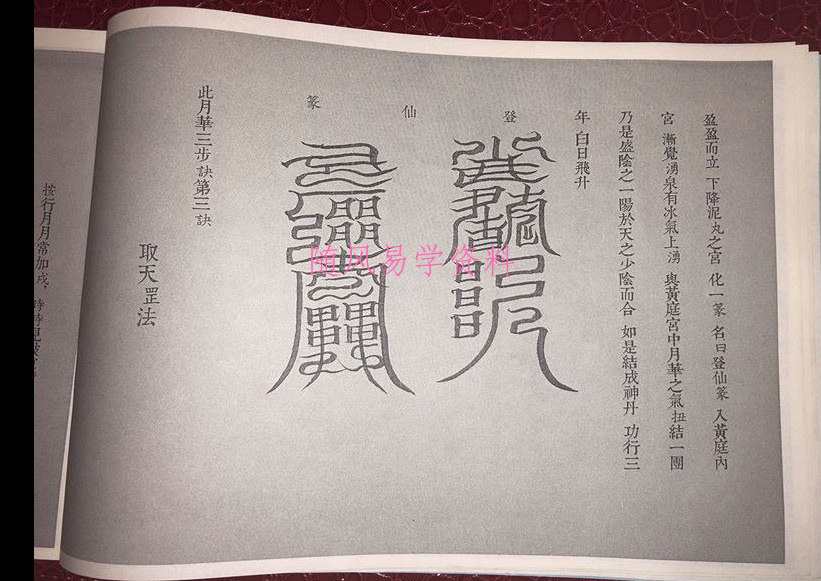 盈盈而立 下降泥丸之宮 化一篆 名曰登仙篆 入黃庭內
宮 漸覺湧泉有冰氣上湧 與黃庭宮中月華之氣扭結一團
乃是盛陰之一陽於天之少陰而合 如是結成神丹 功行三
年 白日飛升
登仙篆
此月華三步訣第三訣
取天罡法
按行月月常加戍,
随风易学资料